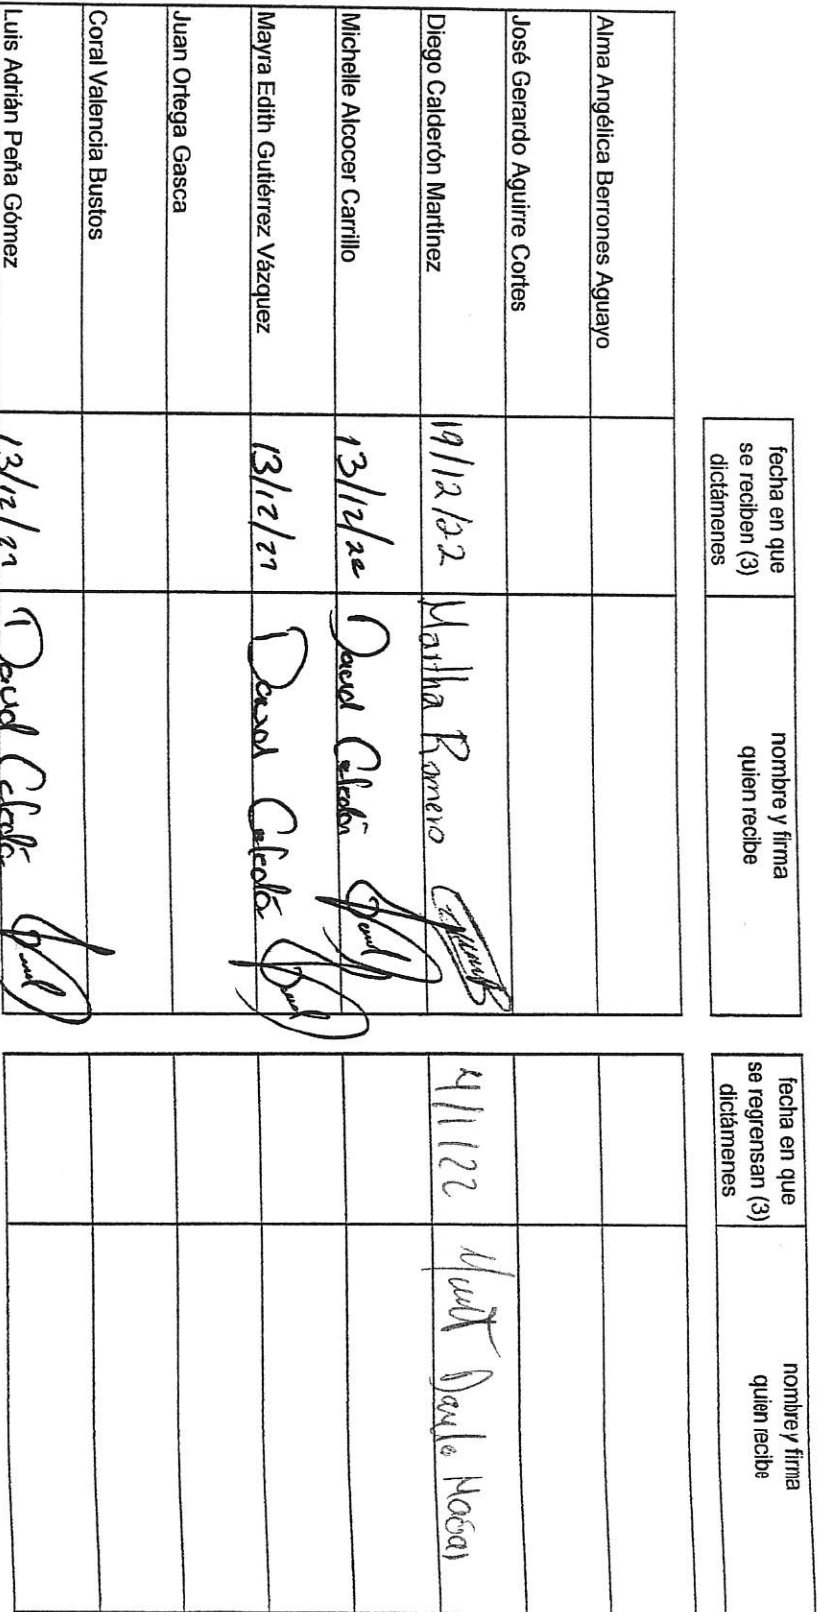 fecha en que
se reciben (3)
dictámenes
nombre y firma
quien recibe
fecha en que
se regrensan (3)
dictámenes
nombre y firma
quien recibe
Alma Angélica Berrones Aguayo
José Gerardo Aguirre Cortes
Diego Calderón Martínez 19/12/22 Martha Romero 4/1/22
Michelle Alcocer Carrillo 13/12/22 David
Mayra Edith Gutiérrez Vázquez 13/12/22 David
Juan Ortega Gasca
Coral Valencia Bustos
Luis Adrián Peña Gómez 13/12/22 David